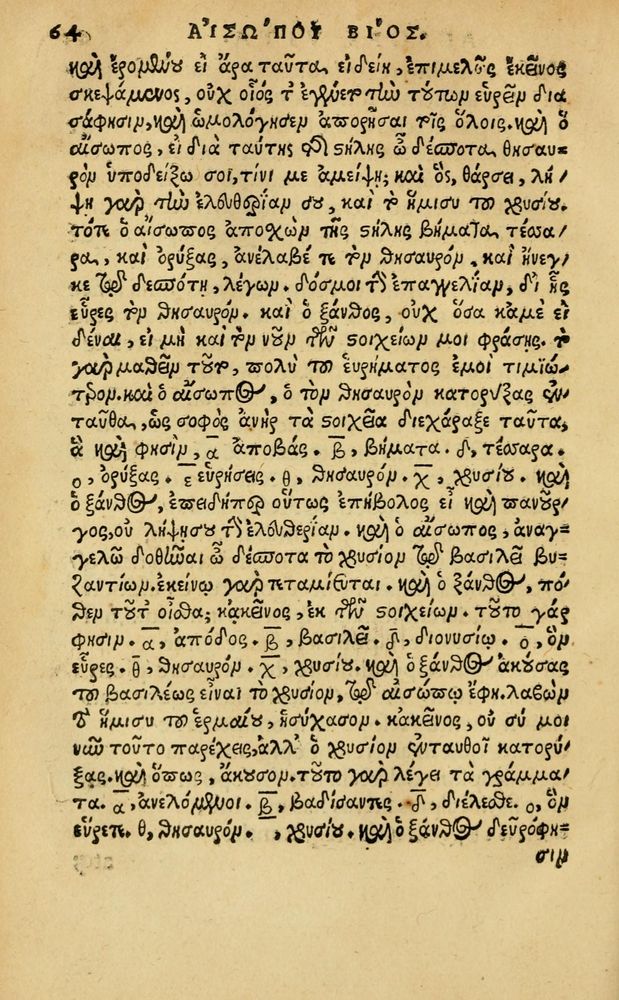 64 ΑΙΣΩΠΟΥ ΒΙΟΣ.
καὶ ἐρομένου εἰ ἄρα ταῦτα εἰδείη, ἐπιμελῶς ἐκεῖνος
σκεψάμενος, οὐχ οἷός τ' ἐγένετο τὴν τούτων εὑρεῖν δια
σάφησιν, καὶ ὡμολόγησεν ἀπορῆσαι τοῖς ὅλοις. καὶ ὁ
αἴσωπος, εἰ διὰ ταύτης τῆς στήλης ὦ δέσποτα, θησαυ=
ρὸν ὑποδείξω σοι, τίνι με ἀμείψῃ; καὶ ὃς, θάρσει, λή/
ψῃ γὰρ τὴν ἐλευθερίαν σου, καὶ τὸ ἥμισυ τοῦ χρυσίου.
τότε ὁ αἴσωπος ἀποχὼν τῆς στήλης βήματα, τέσσα/
ρα, καὶ ὀρύξας, ἀνέλαβέ τε τὸν θησαυρὸν, καὶ ἤνεγ/
κε τῷ δεσπότῃ, λέγων. δός μοι τὴν ἐπαγγελίαν, δι' ἧς
εὗρες τὸν θησαυρόν. καὶ ὁ ξάνθος, οὐχ ὅσα κἀμὲ εἰ
δέναι, εἰ μὴ καὶ τὸν νοῦν τῶν στοιχείων μοι φράσῃς. τὸ
γὰρ μαθεῖν τοῦτο, πολὺ τοῦ εὑρήματος ἐμοὶ τιμιώ/
τερον. καὶ ὁ αἴσωπος, ὁ τὸν θησαυρὸν κατορύξας ἐν/
ταῦθα, ὡς σοφὸς ἀνὴρ τὰ στοιχεῖα διεχάραξε ταῦτα,
ἃ καὶ φησὶν, α ἀποβάς. β, βήματα. δ, τέσσαρα.
ο, ὀρύξας. ε εὑρήσεις. θ, θησαυρόν. χ, χρυσίου. καὶ
ὁ ξάνθος, ἐπειδήπερ οὕτως ἐπήβολος εἶ καὶ πανοῦρ/
γος, οὐ λήψῃ σου τὴν ἐλευθερίαν. καὶ ὁ αἴσωπος, ἀναγ/
γελῶ δοθῆναι ὦ δέσποτα τὸ χρυσίον τῷ βασιλεῖ βυ=
ζαντίων. ἐκείνῳ γὰρ τεταμίευται. καὶ ὁ ξάνθος, πό/
θεν τοῦτ' οἶσθα; κἀκεῖνος, ἐκ τῶν στοιχείων. τοῦτο γάρ
φησιν. α, ἀπόδος. β, βασιλεῖ. δ, διονυσίῳ. ο, ὃν
εὗρες. θ, θησαυρόν. χ, χρυσίου. καὶ ὁ ξάνθος ἀκούσας
τοῦ βασιλέως εἶναι τὸ χρυσίον, τῷ αἰσώπῳ ἔφη. λαβὼν
τὸ ἥμισυ τοῦ ἑρμαίου, ἡσύχασον. κἀκεῖνος, οὐ σύ μοι
νῦν τοῦτο παρέχεις, ἀλλ' ὁ χρυσίον ἐνταυθοῖ κατορύ/
ξας. καὶ ὅπως, ἄκουσον. τοῦτο γὰρ λέγει τὰ γράμμα/
τα. α, ἀνελόμενοι. β, βαδίσαντες. δ, διέλεσθε. ο, ὃν
εὕρετε. θ, θησαυρόν. , χρυσίου. καὶ ὁ ξάνθος δεῦρό φη=
σιν